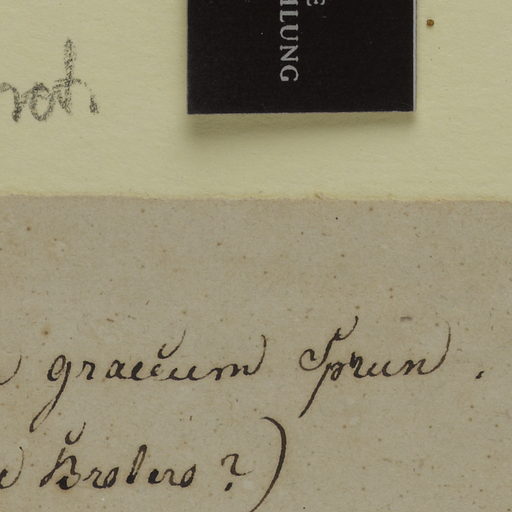 rot.
E
ILUNG
graecum Sprun.
Brotero?)